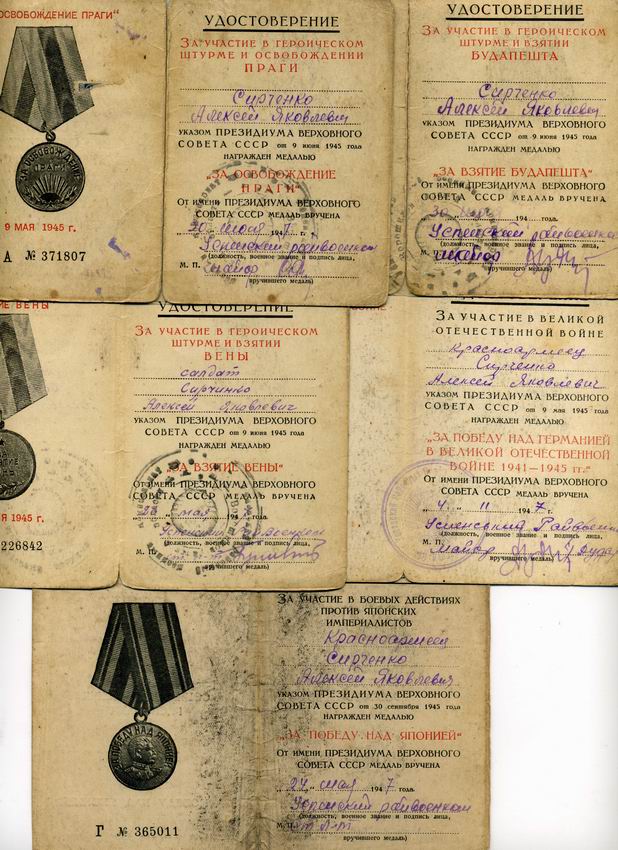 ОСВОБОЖДЕНИЕ ПРАГИ"
ЗА ОСВОБОЖДЕНИЕ
ПРАГИ
9 МАЯ 1945 г.
А № 371807
УДОСТОВЕРЕНИЕ
ЗА УЧАСТИЕ В ГЕРОИЧЕСКОМ
ШТУРМЕ И ОСВОБОЖДЕНИИ
ПРАГИ
Сирченко
Алексей Яковлевич
УКАЗОМ ПРЕЗИДИУМА ВЕРХОВНОГО
СОВЕТА СССР от 9 июня 1945 года
НАГРАЖДЕН МЕДАЛЬЮ
„ЗА ОСВОБОЖДЕНИЕ
ПРАГИ"
ОТ ИМЕНИ ПРЕЗИДИУМА ВЕРХОВНОГО
СОВЕТА СССР МЕДАЛЬ ВРУЧЕНА
194 7 г.
Успенский райвоенком
(должность, военное звание и подпись лица,
М. П.
вручившего медаль)
УДОСТОВЕРЕНИЕ
ЗА УЧАСТИЕ В ГЕРОИЧЕСКОМ
ШТУРМЕ И ВЗЯТИИ
БУДАПЕШТА
Сирченко
Алексей Яковлевич
УКАЗОМ ПРЕЗИДИУМА ВЕРХОВНОГО
СОВЕТА СССР от 9 июня 1945 года
НАГРАЖДЕН МЕДАЛЬЮ
„ЗА ВЗЯТИЕ БУДАПЕШТА"
ОТ ИМЕНИ ПРЕЗИДИУМА ВЕРХОВНОГО
СОВЕТА СССР МЕДАЛЬ ВРУЧЕНА
194 года.
Успенский райвоенком
(должность, военное звание и подпись лица,
М. П.
вручившего медаль)
ВЕНЫ
1945 г.
226842
УДОСТОВЕРЕНИЕ
ЗА УЧАСТИЕ В ГЕРОИЧЕСКОМ
ШТУРМЕ И ВЗЯТИИ
ВЕНЫ
салдат
Сирчинко
Алексей Яковлевич
УКАЗОМ ПРЕЗИДИУМА ВЕРХОВНОГО
СОВЕТА СССР от 9 июня 1945 года
НАГРАЖДЕН МЕДАЛЬЮ
„ЗА ВЗЯТИЕ ВЕНЫ"
ОТ ИМЕНИ ПРЕЗИДИУМА ВЕРХОВНОГО
СОВЕТА СССР МЕДАЛЬ ВРУЧЕНА
мая 194 7 г.
(должность, военное звание и подпись лица,
М. П.
вручившего медаль)
ЗА УЧАСТИЕ В ВЕЛИКОЙ
ОТЕЧЕСТВЕННОЙ ВОЙНЕ
Красноармеец
Сирченко
Алексей Яковлевич
УКАЗОМ ПРЕЗИДИУМА ВЕРХОВНОГО
СОВЕТА СССР от 9 мая 1945 года
НАГРАЖДЕН МЕДАЛЬЮ
„ЗА ПОБЕДУ НАД ГЕРМАНИЕЙ
В ВЕЛИКОЙ ОТЕЧЕСТВЕННОЙ
ВОЙНЕ 1941—1945 гг."
ОТ ИМЕНИ ПРЕЗИДИУМА ВЕРХОВНОГО
СОВЕТА СССР МЕДАЛЬ ВРУЧЕНА
4 11 194 7 г.
(должность, военное звание и подпись лица,
М. П. Майор
вручившего медаль)
ЗА ПОБЕДУ НАД ЯПОНИЕЙ
Г № 365011
ЗА УЧАСТИЕ В БОЕВЫХ ДЕЙСТВИЯХ
ПРОТИВ ЯПОНСКИХ
ИМПЕРИАЛИСТОВ
Красноармеец
Сирченко
Алексей Яковлевич
УКАЗОМ ПРЕЗИДИУМА ВЕРХОВНОГО
СОВЕТА СССР от 30 сентября 1945 года
НАГРАЖДЕН МЕДАЛЬЮ
„ЗА ПОБЕДУ НАД ЯПОНИЕЙ"
ОТ ИМЕНИ ПРЕЗИДИУМА ВЕРХОВНОГО
СОВЕТА СССР МЕДАЛЬ ВРУЧЕНА
„24" мая 194 7 года.
Успенский райвоенком
(должность, военное звание и подпись лица,
М. П.
вручившего медаль)